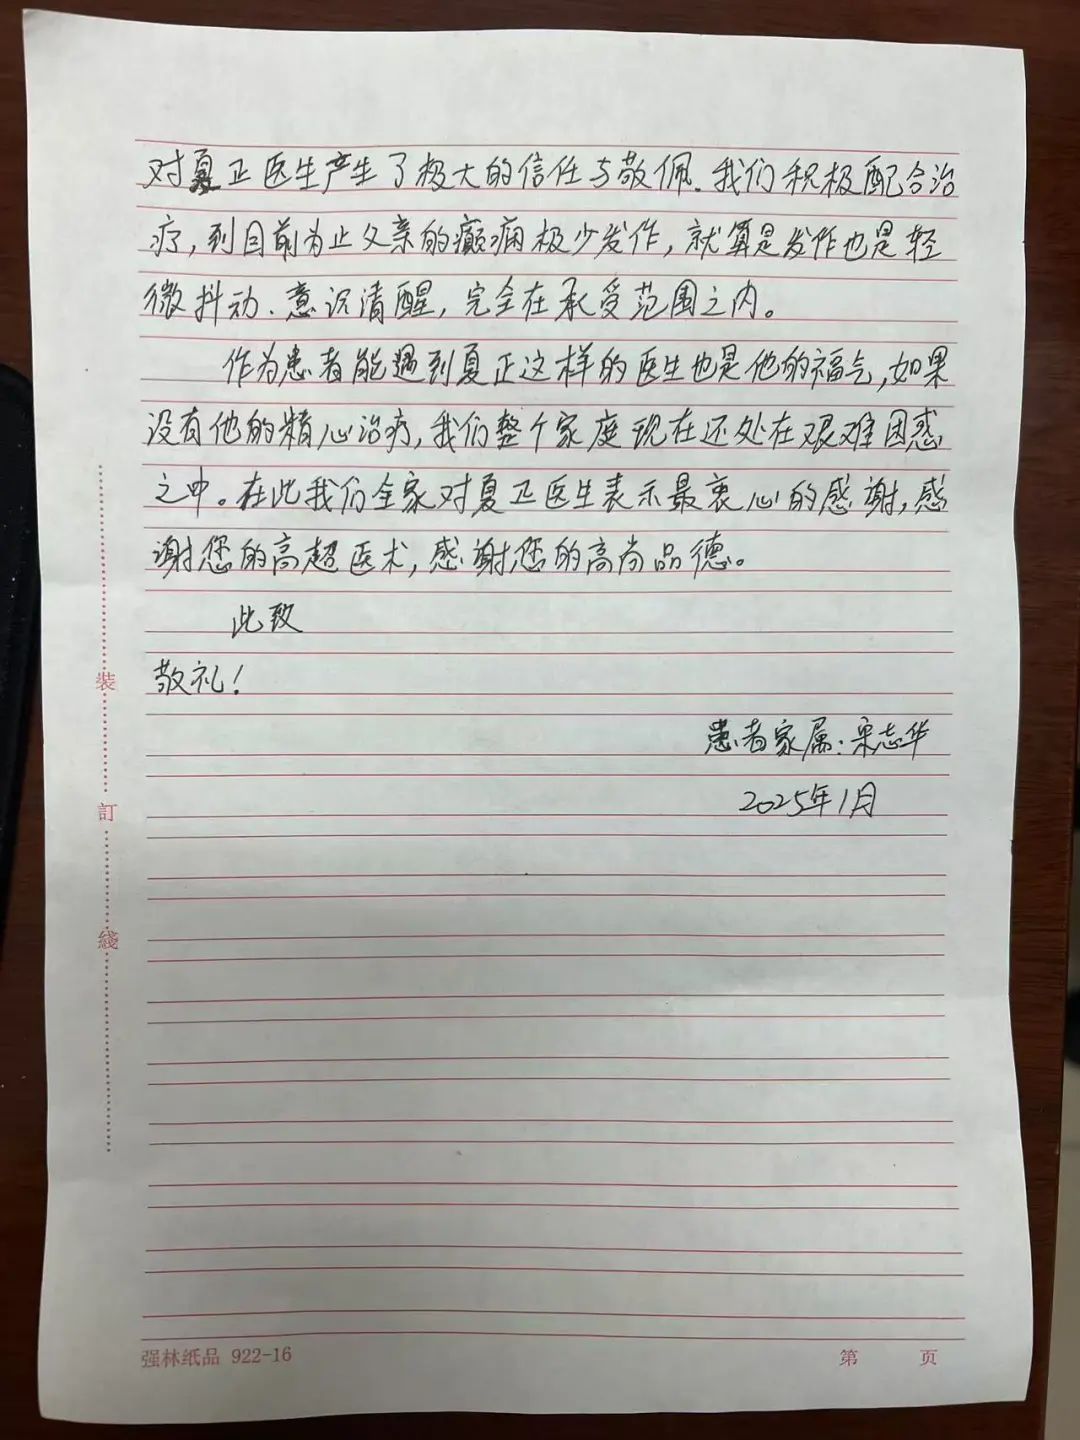 对夏正医生产生了极大的信任与敬佩.我们积极配合治
疗,到目前为止父亲的癫痫极少发作,就算是发作也是轻
微抖动、意识清醒,完全在承受范围之内。
作为患者能遇到夏正这样的医生也是他的福气,如果
没有他的精心治疗,我们整个家庭现在还处在艰难困惑
之中。在此我们全家对夏正医生表示最衷心的感谢,感
谢您的高超医术,感谢您的高尚品德。
此致
敬礼!
患者家属:宋志华
2025年1月
裝
訂
綫
强林纸品 922-16
第 页